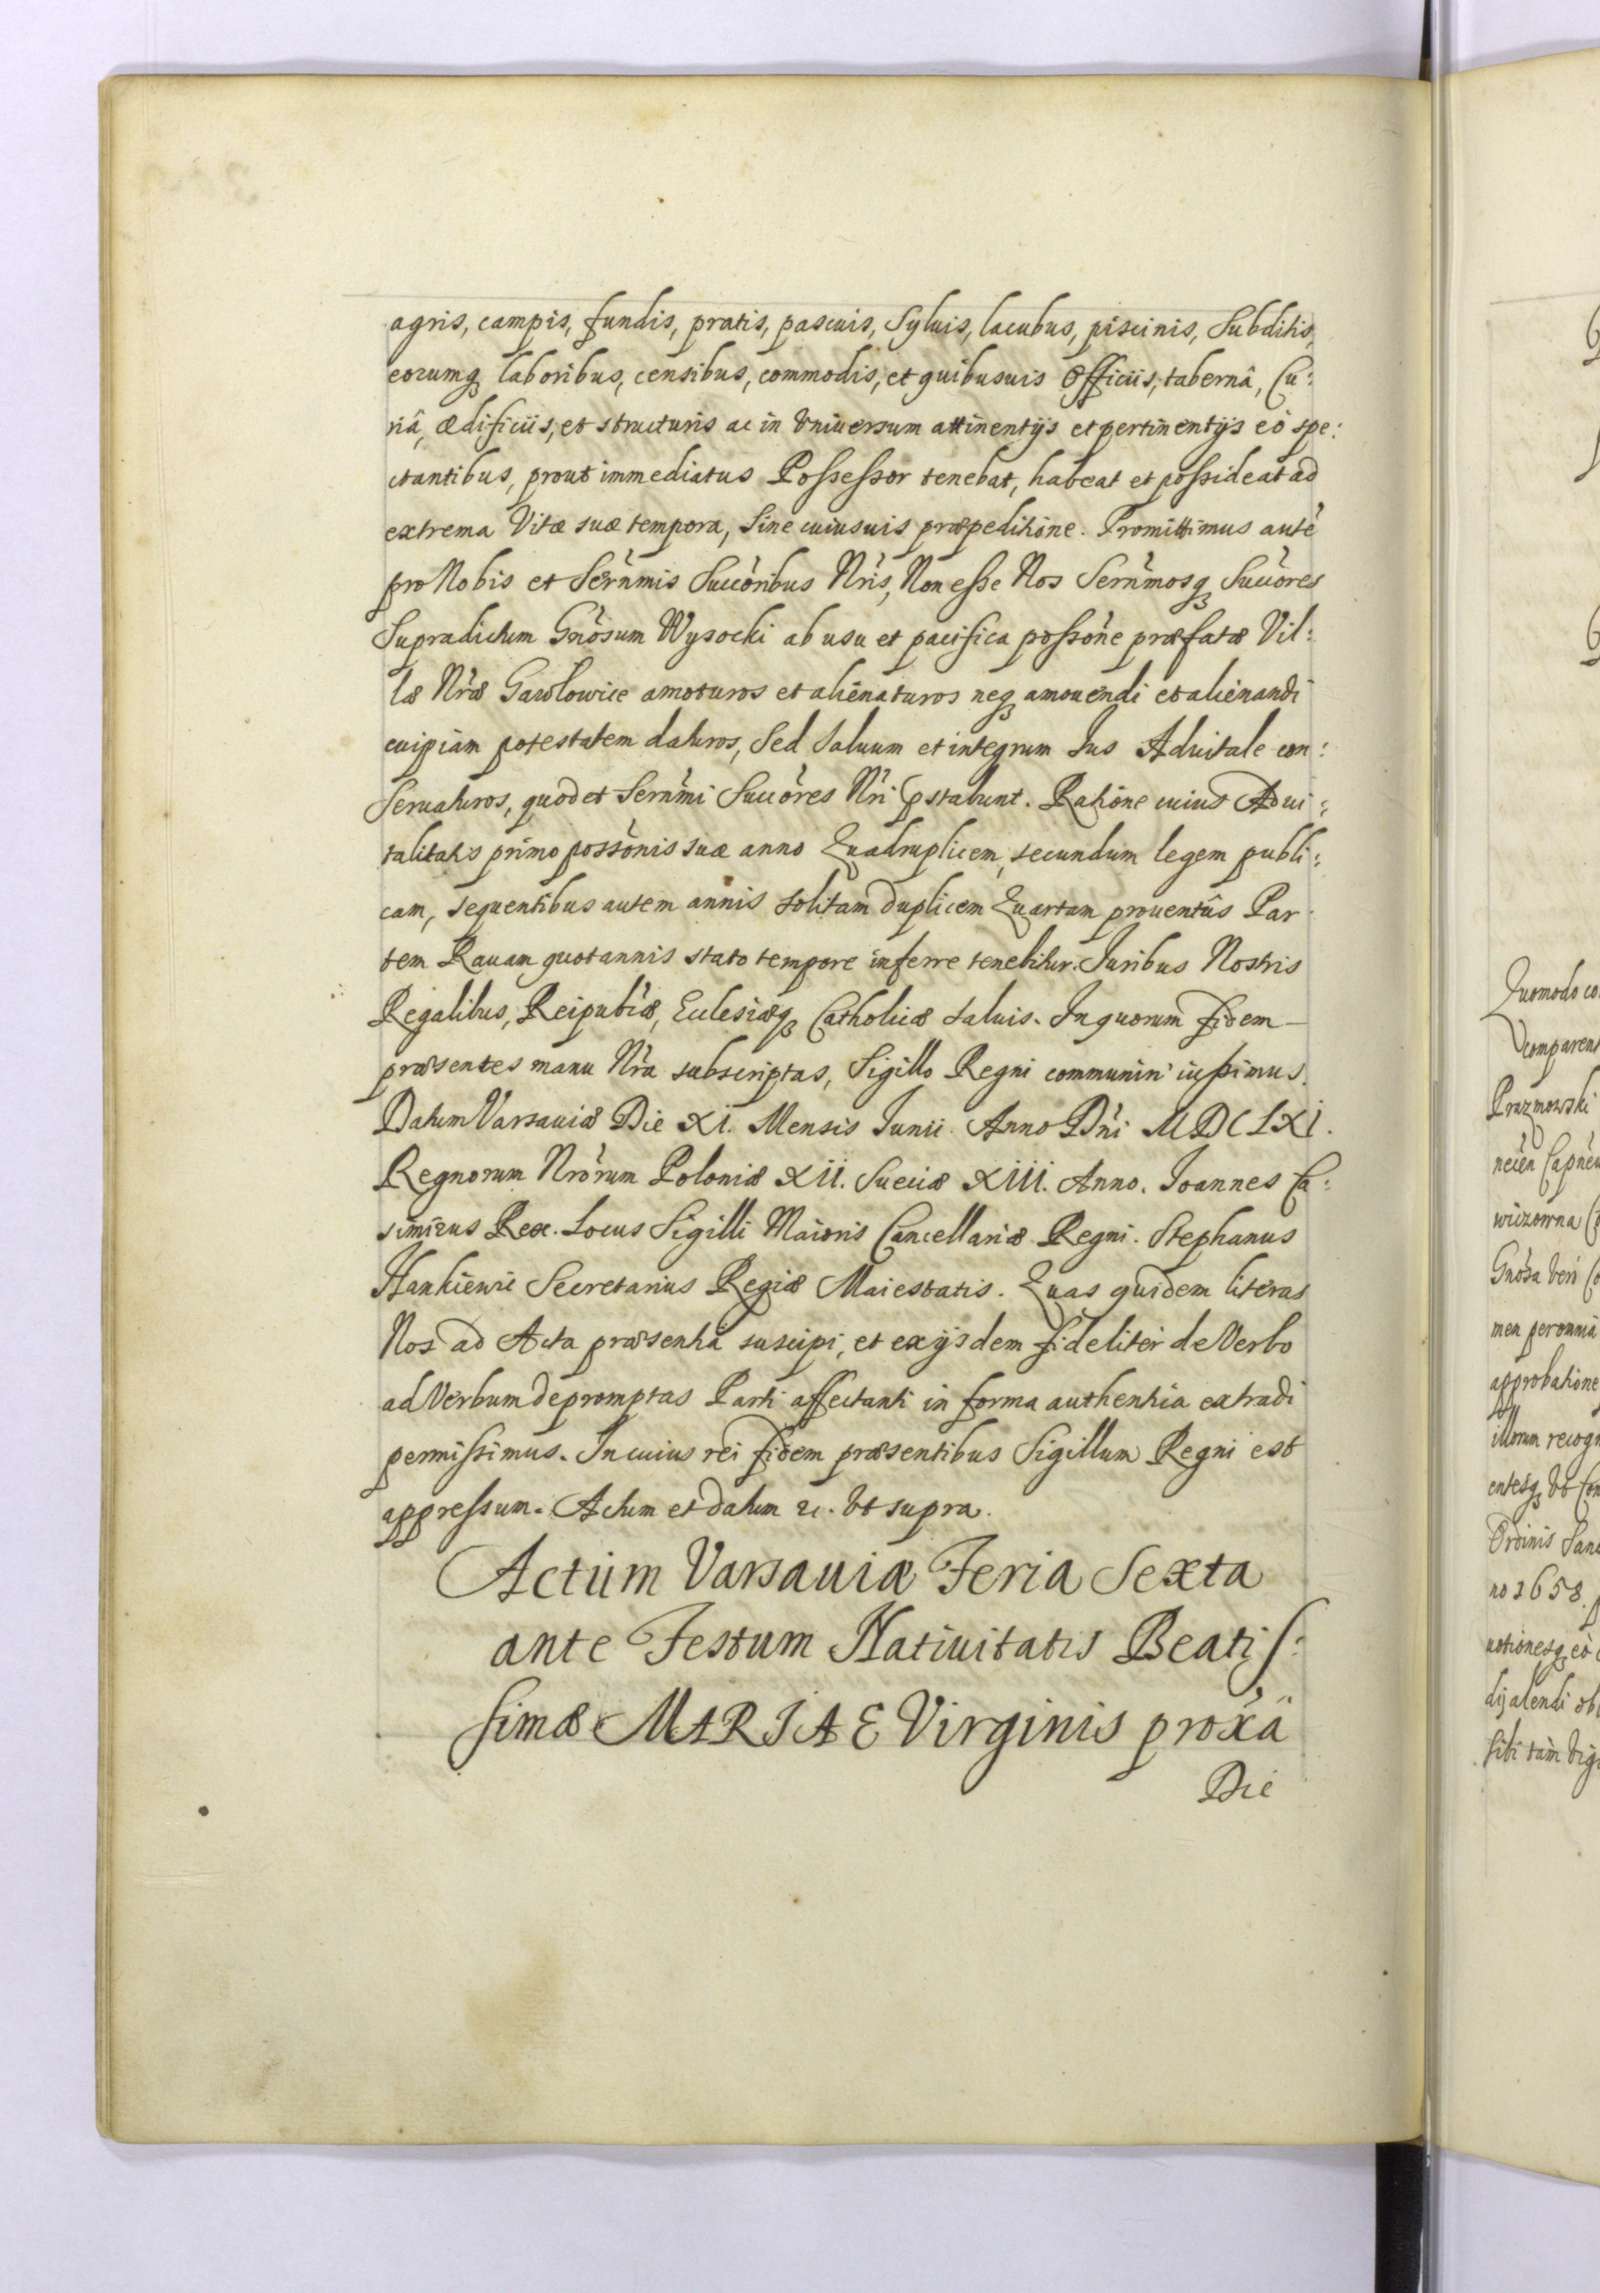 agris, campis, fundis, pratis, pascuis, Syluis, lacubus, piscinis, Subditis,
eorumq; laboribus, censibus, commodis, et quibusuis Officiis, tabernâ, Cu:
riâ, ædificiis, et structuris ac in Vniuersum attinentijs et pertinentijs eò spe:
ctantibus, prout immediatus Possessor tenebat, habeat et possideat ad
extrema Vitæ suæ tempora, Sine cuiusuis præpeditione. Promittimus autẽ
pro Nobis et Serñmis Succõribus Nr̃is, Non esse Nos Serñmosq; Succõres
Supradictum Gñosum Wysocki ab usu et pacifica possõne præfatæ Vil:
læ Nr̃æ Gawlowice amoturos et alienaturos neq; amouendi et alienandi
cuipiam potestatem daturos, Sed Saluum et integrum Ius Aduitale con:
Seruaturos, quod et Serñmi Succõres Nr̃i p̃stabunt. Ratione cuius Adui:
talitatis primo possõnis suæ anno Quadruplicem, secundum legem publi:
cam, sequentibus autem annis solitam duplicem Quartam prouentûs Par
tem Rauam quotannis stato tempore inferre tenebitur. Iuribus Nostris
Regalibus, Reipubl̃æ, Ecclesiæq; Catholicæ saluis. In quorum fidem
præsentes manu Nr̃a subscriptas, Sigillo Regni communiri iussimus.
Datum Varsauiæ Die XI. Mensis Iunii Anno Dñi MDCLXI.
Regnorum Nrõrum Poloniæ XII. Sueciæ XIII. Anno. Ioannes Ca:
simirus Rex. Locus Sigilli Maioris Cancellariæ Regni. Stephanus
Hankiewic Secretarius Regiæ Maiestatis. Quas quidem literas
Nos ad Acta præsentia suscipi, et ex ijsdem fideliter de Verbo
ad Verbum depromptas Parti affectanti in forma authentica extradi
permissimus. In cuius rei fidem præsentibus Sigillum Regni est
appressum. Actum et datum &c. Vt supra.
Actum Varsauiæ Feria Sexta
ante Festum Natiuitatis Beatis:
simæ MARIAE Virginis prox̃a
Die
Quomodo co
comparent
Prazmowski
wiczowna
men peromnia
approbatione
illorum recogn
Ordinis Sanc
no 1658.